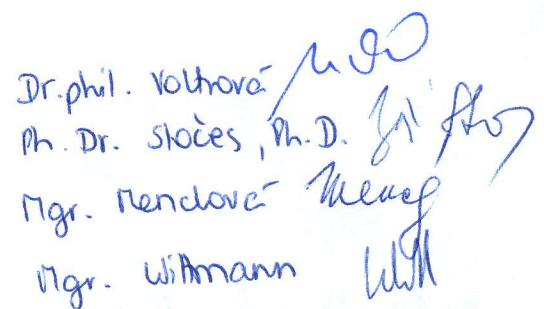 Dr. phil. Voltrová
Ph. Dr. Stočes, Ph. D.
Mgr. Menclová
Mgr. Wittmann